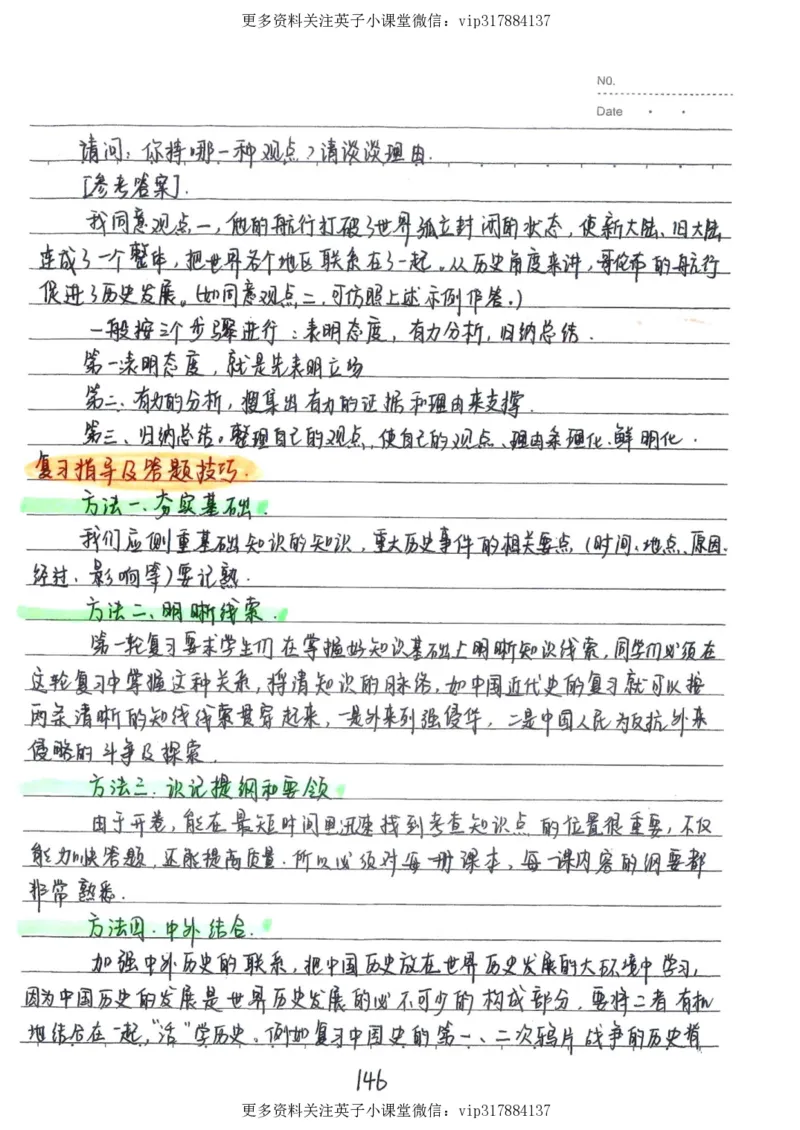 更多资料关注英子小课堂微信：vip317884137
NO.
Date
请问：你持哪一种观点？请谈谈理由.
[参考答案].
我同意观点一，他的航行打破了世界孤立封闭的状态，使新大陆、旧大陆
连成了一个整体，把世界各个地区联系在了一起。从历史角度来讲，哥伦布的航行
促进了历史发展。(如同意观点二，可仿照上述示例作答。)
一般按三个步骤进行：表明态度，有力分析，归纳总结.
第一、表明态度，就是先表明立场
第二、有力的分析，搜集出有力的证据和理由来支撑.
第三、归纳总结。整理自己的观点，使自己的观点、理由条理化、鲜明化.
复习指导及答题技巧.
方法一、夯实基础.
我们应侧重基础知识的知识，重大历史事件的相关要点（时间、地点、原因、
经过、影响等）要记熟.
方法二、明晰线索.
第一轮复习要求学生们在掌握好知识基础上明晰知识线索，同学们必须在
这轮复习中掌握这种关系，捋清知识的脉络，如中国近代史的复习就可以按
两条清晰的知线线索贯穿起来，一是外来列强侵华，二是中国人民为反抗外来
侵略的斗争及探索.
方法三.识记提纲和要领.
由于开卷，能在最短时间里迅速找到考查知识点的位置很重要，不仅
能加快答题，还能提高质量.所以必须对每一册课本，每一课内容的纲要都
非常熟悉.
方法四.中外结合.
加强中外历史的联系，把中国历史放在世界历史发展的大环境中学习，
因为中国历史的发展是世界历史发展的必不可少的构成部分，要将二者有机
地结合在一起，“活”学历史。例如复习中国史的第一、二次鸦片战争的历史背
146
更多资料关注英子小课堂微信：vip317884137